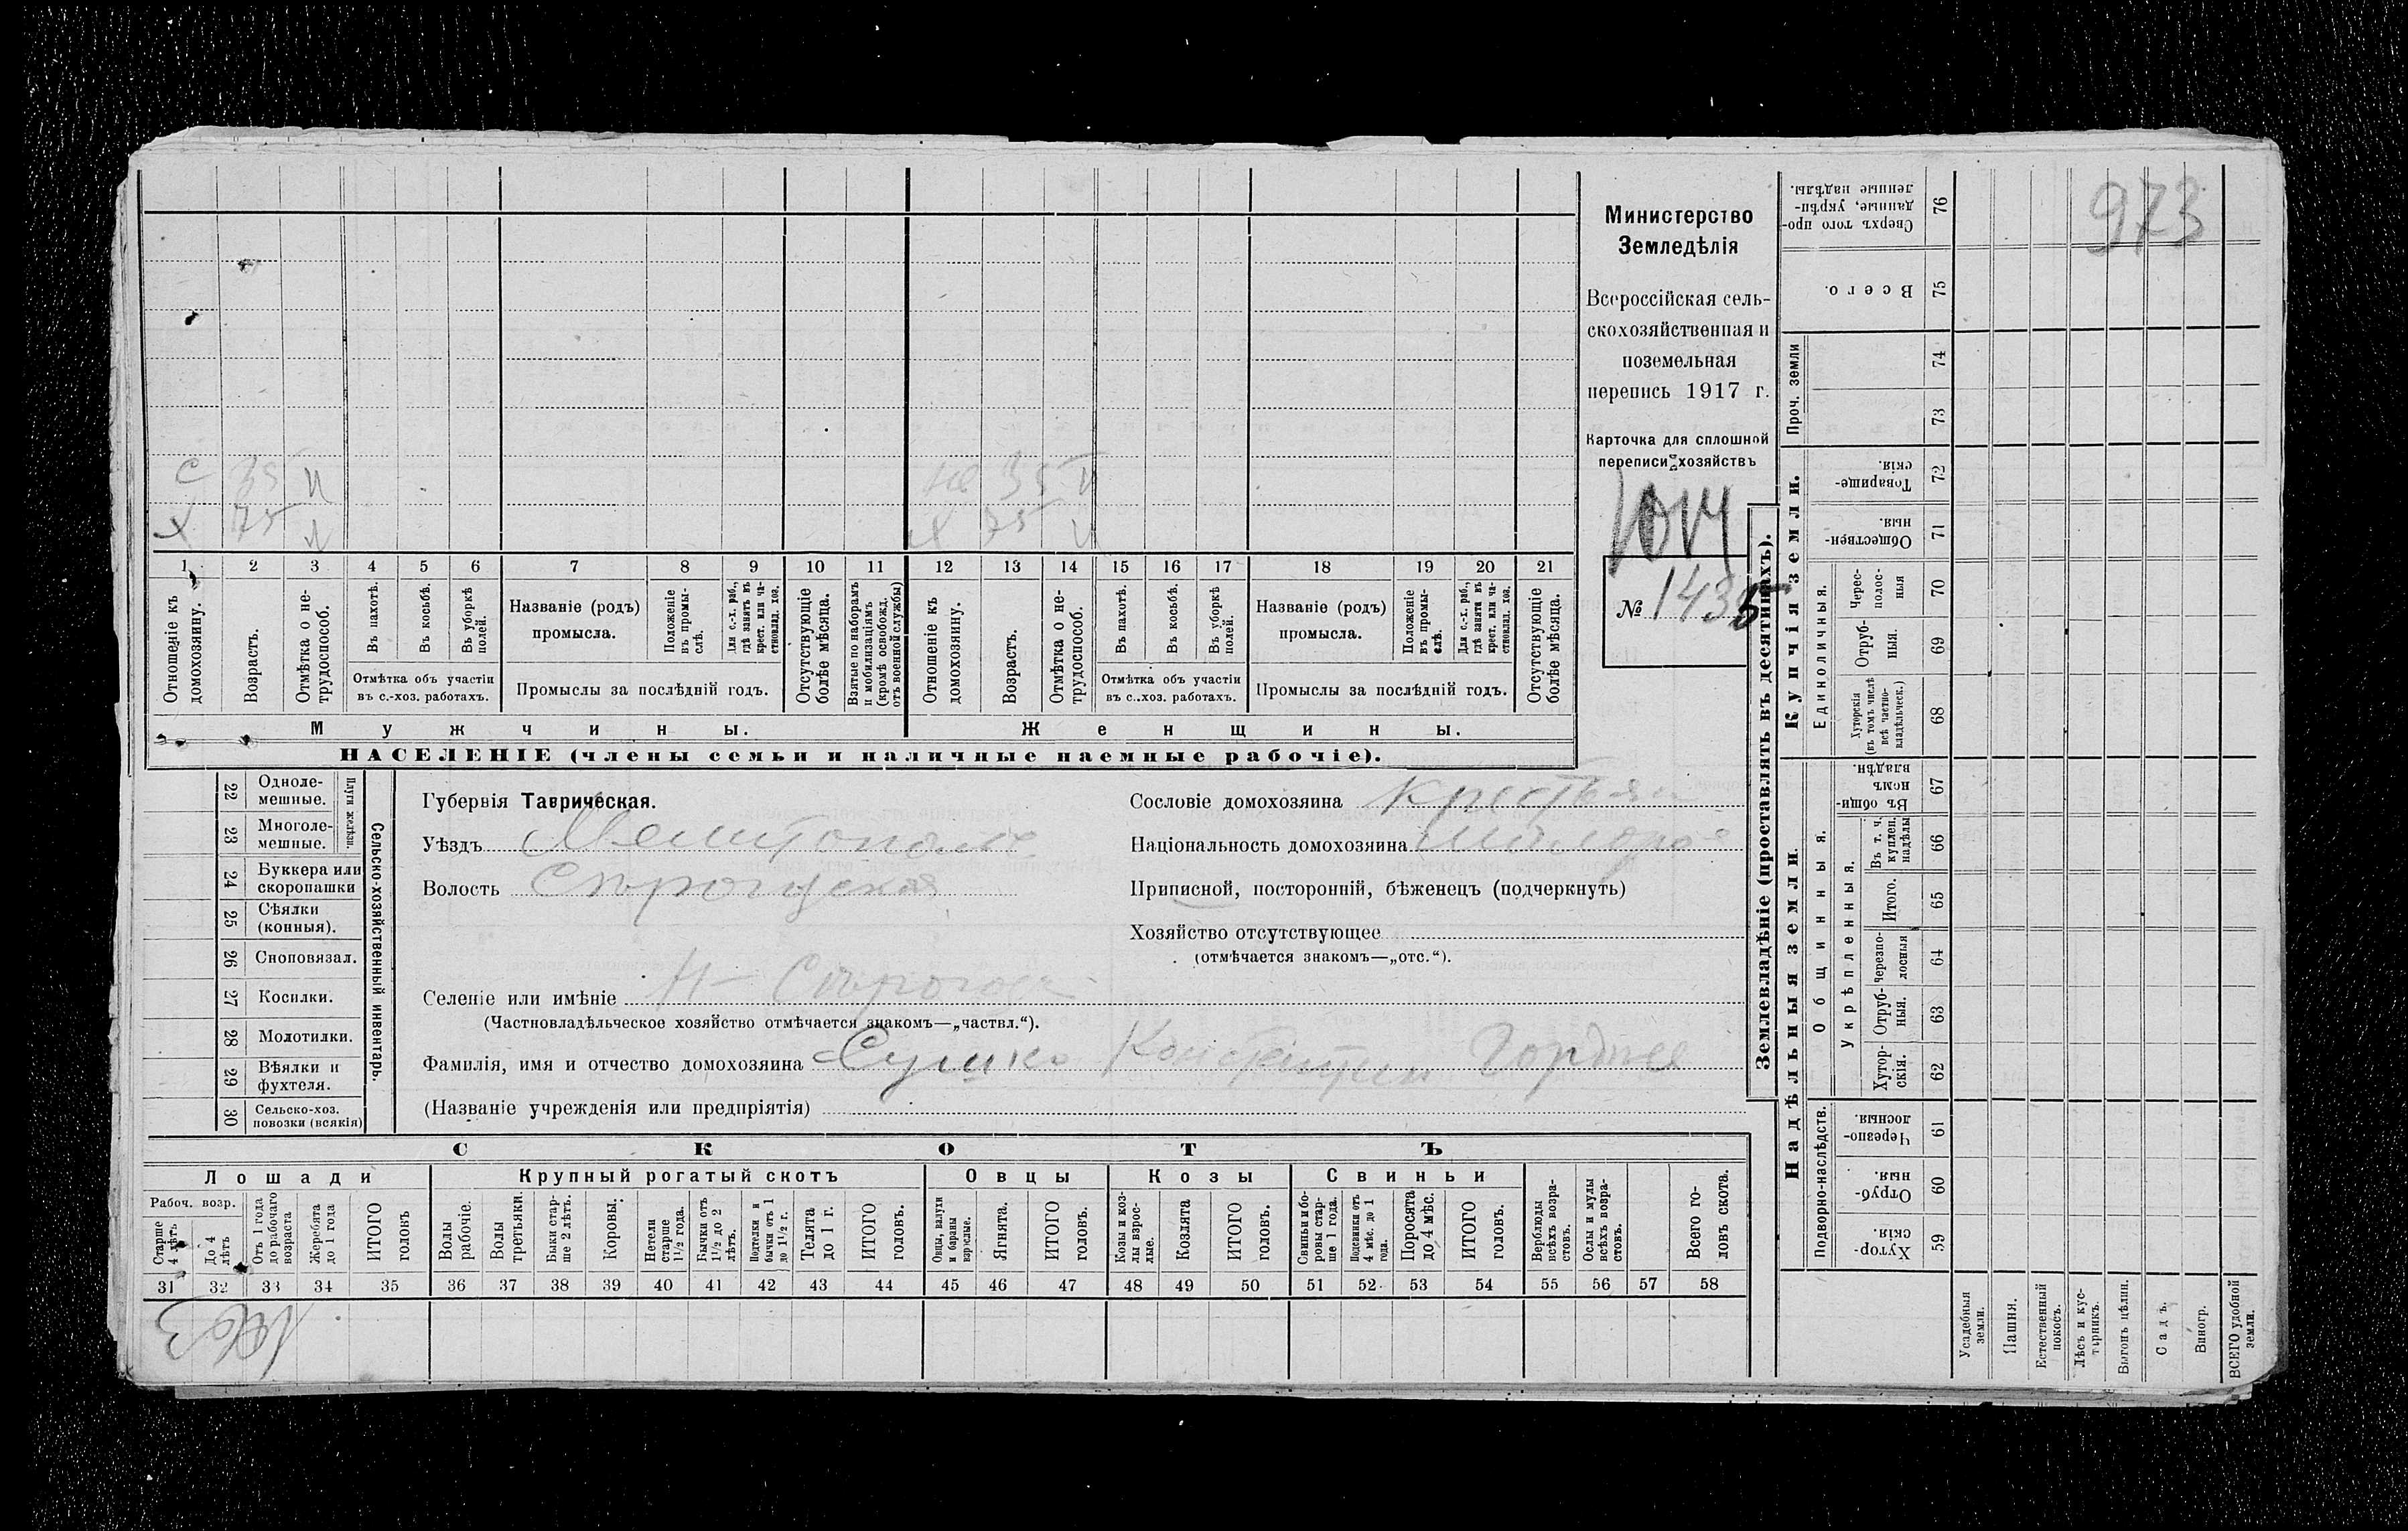 973
Министерство
Земледѣлія
Всероссійская сель-
скохозяйственная и
поземельная
перепись 1917 г.
Карточка для сплошной
переписи хозяйствъ
№ 1435
С 35 35
Х 75 75
1 2 3 4 5 6 7 8 9 10 11 12 13 14 15 16 17 18 19 20 21
Отношеніе къ домохозяину.
Возрастъ.
Отмѣтка о не-трудоспособ.
Въ пахотѣ.
Въ косьбѣ.
Въ уборкѣ полей.
Отмѣтка объ участіи
въ с.-хоз. работахъ.
Названіе (родъ)
промысла.
Положеніе въ промы-слѣ.
Для с.-х. раб., гдѣ занятъ въ крест. или ча-стновлад. хоз.
Промыслы за послѣдній годъ.
Отсутствующіе болѣе мѣсяца.
Взятые по наборамъ и мобилизаціямъ (кромѣ освобожд. отъ военной службы)
Отношеніе къ домохозяину.
Возрастъ.
Отмѣтка о не-трудоспособ.
Въ пахотѣ.
Въ косьбѣ.
Въ уборкѣ полей.
Отмѣтка объ участіи
въ с..хоз. работахъ.
Названіе (родъ)
промысла.
Положеніе въ промы-слѣ.
Для с.-х. раб., гдѣ занята въ крест. или ча-стновлад. хоз.
Промыслы за послѣдній годъ.
Отсутствующіе болѣе мѣсяца.
Мужчины. Женщины.
НАСЕЛЕНІЕ (члены семьи и наличные наемные рабочіе).
Сельско-хозяйственный инвентарь.
Плуги желѣзн.
22 Одноле-мешные.
23 Многоле-мешные.
24 Буккера или скоропашки
25 Сѣялки (конныя).
26 Сноповязал.
27 Косилки.
28 Молотилки.
29 Вѣялки и фухтеля.
30 Сельско-хоз. повозки (всякія)
Губернія Таврическая.
Уѣздъ Мелитополь
Волость Сѣрогозская
Сословіе домохозяина крестьян
Національность домохозяина малорос
Приписной, посторонній, бѣженецъ (подчеркнуть)
Хозяйство отсутствующее
(отмѣчается знакомъ—„отс.“).
Селеніе или имѣніе Н- Сѣрогозы
(Частновладѣльческое хозяйство отмѣчается знакомъ—„частвл.“).
Фамилія, имя и отчество домохозяина Сушко Константин Гордеев
(Названіе учрежденія или предпріятія)
СКОТЪ
Лошади Крупный рогатый скотъ Овцы Козы Свиньи
Рабоч. возр.
Старше 4 лѣтъ
До 4 лѣтъ
Отъ 1 года до рабочаго возраста
Жеребята до 1 года
ИТОГО головъ
Волы рабочіе.
Волы третьяки.
Быки стар-ше 2 лѣтъ.
Коровы.
Нетели старше 1½ года.
Бычки отъ 1½ до 2 лѣтъ.
Подтелки и бычки отъ 1 до 1½ г.
Телята до 1 г.
ИТОГО головъ.
Овцы, валухи и бараны взрослые.
Ягнята.
ИТОГО головъ.
Козы и коз-лы взрос-лые.
Козлята
ИТОГО головъ.
Свиньи и бо-ровы стар-ше 1 года.
Подсвинки отъ 4 мѣс. до 1 года.
Поросята до 4 мѣс.
ИТОГО головъ.
Верблюды всѣхъ возра-стовъ.
Ослы и мулы всѣхъ возра-стовъ.
Всего го-ловъ скота.
31 32 33 34 35 36 37 38 39 40 41 42 43 44 45 46 47 48 49 50 51 52 53 54 55 56 57 58
Землевладѣніе (проставлять въ десятинахъ).
Купчія земли.
Надѣльныя земли
Проч. земли
Единоличныя.
Общинныя.
Укрѣпленныя.
Подворно-наслѣдств.
Сверхъ того про-данные, укрѣп-ленные надѣлы. 76
Всего. 75
74
73
Товарище-скія. 72
Обществен-ныя. 71
Черес-полос-ныя 70
Отруб-ныя. 69
Хуторскія (въ томъ числѣ всѣ частно-владѣльческ.) 68
Въ общи-номъ владѣн. 67
Въ т. ч. куплен. надѣлы 66
Итого. 65
Черезпо-лосныя 64
Отруб-ныя. 63
Хутор-скія. 62
Черезпо-лосныя. 61
Отруб-ныя. 60
Хутор-скія. 59
Усадебныя земли.
Пашня.
Естественный покосъ.
Лѣсъ и кус-тарникъ.
Выгонъ цѣлин.
Садъ.
Виногр.
ВСЕГО удобной земли.